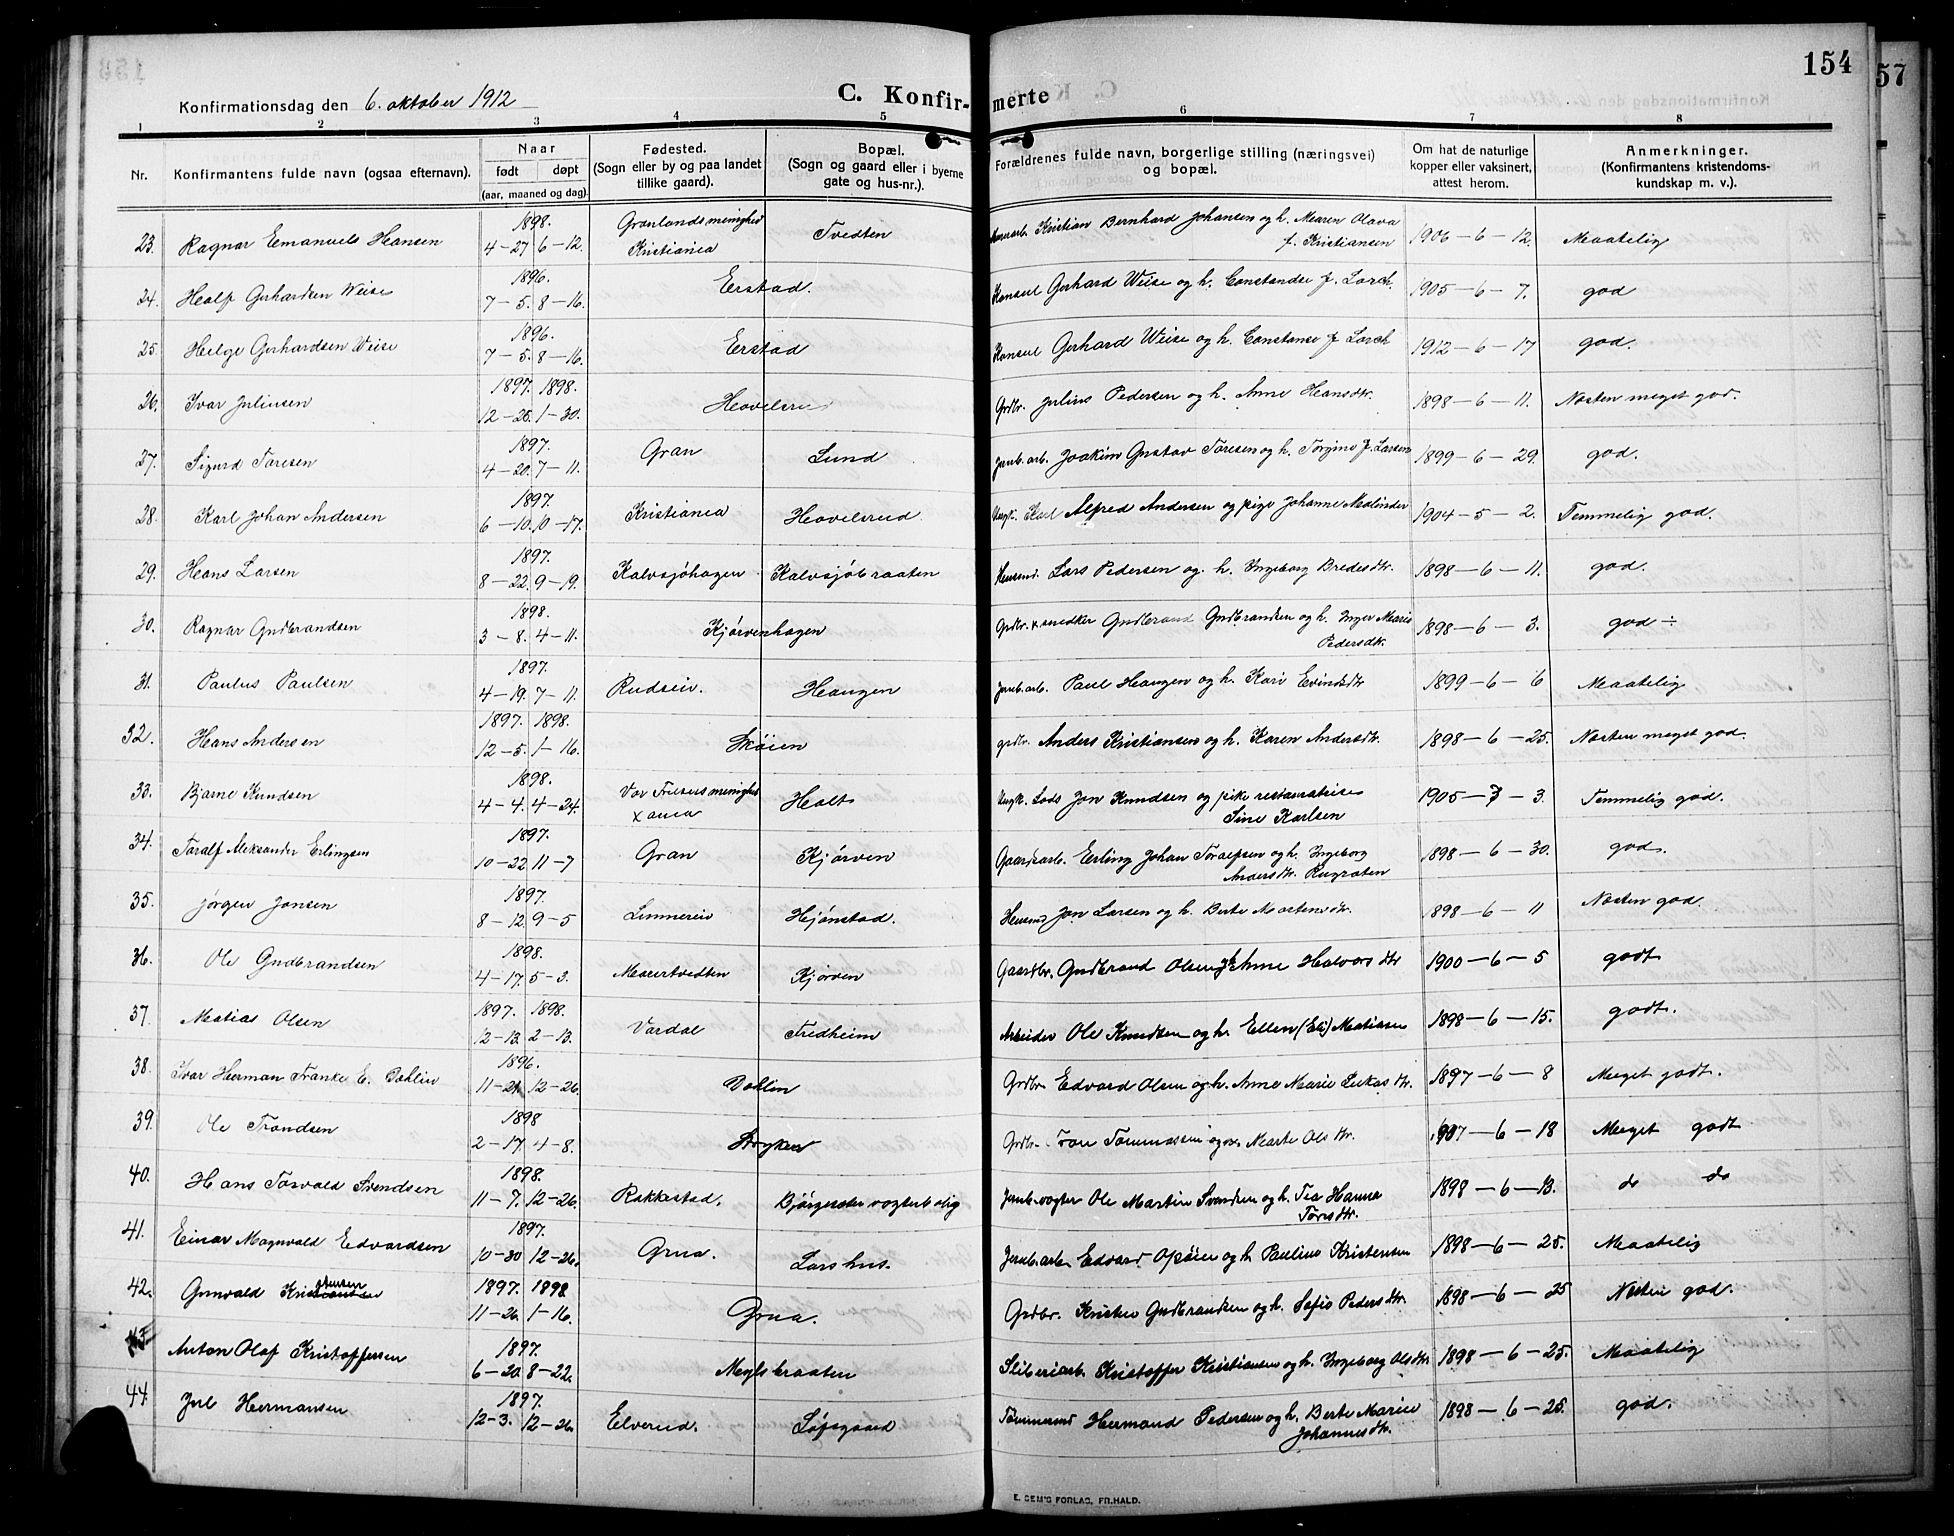 154
57
Konfirmationsdag den 6. oktober 1912
C. Konfirmerte
1 2 3 4 5 6 7 8
Nr. Konfirmantens fulde navn (ogsaa efternavn). Naar født døpt (aar, maaned og dag). Fødested. (Sogn eller by og paa landet tillike gaard). Bopæl. (Sogn og gaard eller i byerne gate og hus-nr.). Forældrenes fulde navn, borgerlige stilling (næringsvei) og bopæl. Om hat de naturlige kopper eller vaksinert, attest herom. Anmerkninger. (Konfirmantens kristendomskundskap m. v.).
23. Ragnar Emanuels Hansen 1898. 4-27 6-12. Grønlandsmenighed Kristiania Tvedten Kristian Bernhard Johansen og h. Maren Olava f. Kristiansen 1906-6-12. Maatelig
24. Half Gerhardsen Weise 1896. 7-5. 8-16. Erstad. Konsul Gerhard Weise og h. Constanse f. Lorch. 1905-6-7. god
25. Helge Gerhardsen Weise 1896. 7-5. 8-16. Erstad Konsul Gerhard Weise og h. Constanse f. Lorch 1912-6-17 god.
26. Ivar Juliusen 1897. 1898. 12-26. 1-30. Hovelsrud Grdbr. Julius Pedersen og h. Anne Hansdtr. 1898-6-11. Næsten meget god.
27. Sigurd Toresen 1897. 4-20. 7-11. Gran Lund Jernb.arb. Joakim Gustav Toresen og h. Torgine f. Larsen 1899-6-29. god.
28. Karl Johan Andersen 1897. 6-10. 10-17. Kristiania Hovelsrud. Ungk. Karl Alfred Andersen og pige Johanne Malinder 1904-5-2. Temmelig god.
29. Hans Larsen 1897. 8-22. 9-19. Kalvsjøhagen Kalvsjøbraaten Husmd. Lars Pedersen og h. Ingeborg Bredesdtr. 1898-6-11. god.
30. Ragnar Gudbrandsen 1898. 3-8. 4-11. Kjørvenhagen Grdbr. & snedker Gudbrand Gudbrandsen og h. Inger Marie Pedersdtr. 1898-6-3. god ÷
31. Paulus Paulsen 1897. 4-19. 7-11. Rudseie. Haugen Jernb.arb. Paul Haugen og h. Kari Evindsdtr 1899-6-6 Maatelig
32. Hans Andersen 1897. 1898. 12-5. 1-16. Skøien grdbr. Anders Kristiansen og h. Karen Andersdtr. 1898-6-25. Næsten meget god.
33. Bjarne Knudsen 1898. 4-4. 4-24. Vor Frelsersmenighed Xania Holt Ungk. Lods Jon Knudsen og pike restauratrise Sine Karlsen 1905-7-3. Temmelig god.
34. Toralf Aleksander Erlingsen 1897. 10-22 11-7 Gran Kjørven Gaardsarb. Erling Johan Toralfsen og h. Ingeborg Andersdtr. Rugraten 1898-6-30. god.
35. Jørgen Jonsen 1897. 8-12. 9-5 Linnereie Hjønstad. Husmd Jon Larsen og h. Berte Mortensdtr. 1898-6-11 Næsten god.
36. Ole Gudbrandsen 1898. 4-17. 5-3. Maiertvedten Kjørven Gaardbr. Gudbrand Olsen og h. Anne Halvorsdtr 1900-6-5 godt
37. Matias Olsen 1897. 1898. 12-13. 2-13. Vardal Fredheim Arbeider Ole Knudsen og h. Ellen (Eli) Matiasen 1898-6-15. godt.
38. Ivar Herman Franke E. Dæhlin 1896. 11-21. 12-26. Dæhlin Grdbr. Edvard Olsen og h. Anne Marie Lukasdtr. 1897-6-8 Meget godt.
39. Ole Trondsen 1898 2-17. 4-8. Stryken Grdbr. Tron Tommassen Marte Olsdtr. 1907-6-18 Meget godt
40. Hans Torvald Svendsen 1898. 11-7. 12-26. Rakkestad. Bjørgeseter vogterbolig Jernb.vogter Ole Martin Svendsen og h. Tea Hanna Toresdtr. 1898-6-13. do do
41. Einar Magnvald Edvardsen 1897. 10-30 12-26. Grua. Larshus. Jernb.arb. Edvard Opøien og h. Pauline Kristensen 1898-6-25. Maatelig
42. Gunvald Kristiansen stensen 1897. 1898 11-26. 1-16. Grua. Grdbr. Kristen Gudbrandsen og h. Sofie Pedersdtr. 1898-6-25 Næsten god.
43. Anton Olaf Kristoffersen 1897. 6-20. 8-22. Myhlsbraaten Sliberiarb. Kristoffer Kristiansen og h. Ingeborg Olsdtr 1898-6-25. Maatelig
44. Jul Hermansen 1897. 12-3. 12-26. Elverud. Løfsgaard Tømmermd Hermand Pedersen og h. Berte Marie Johannesdtr. 1898-6-25. god.
E. SEM'S FORLAG, FR.HALD.